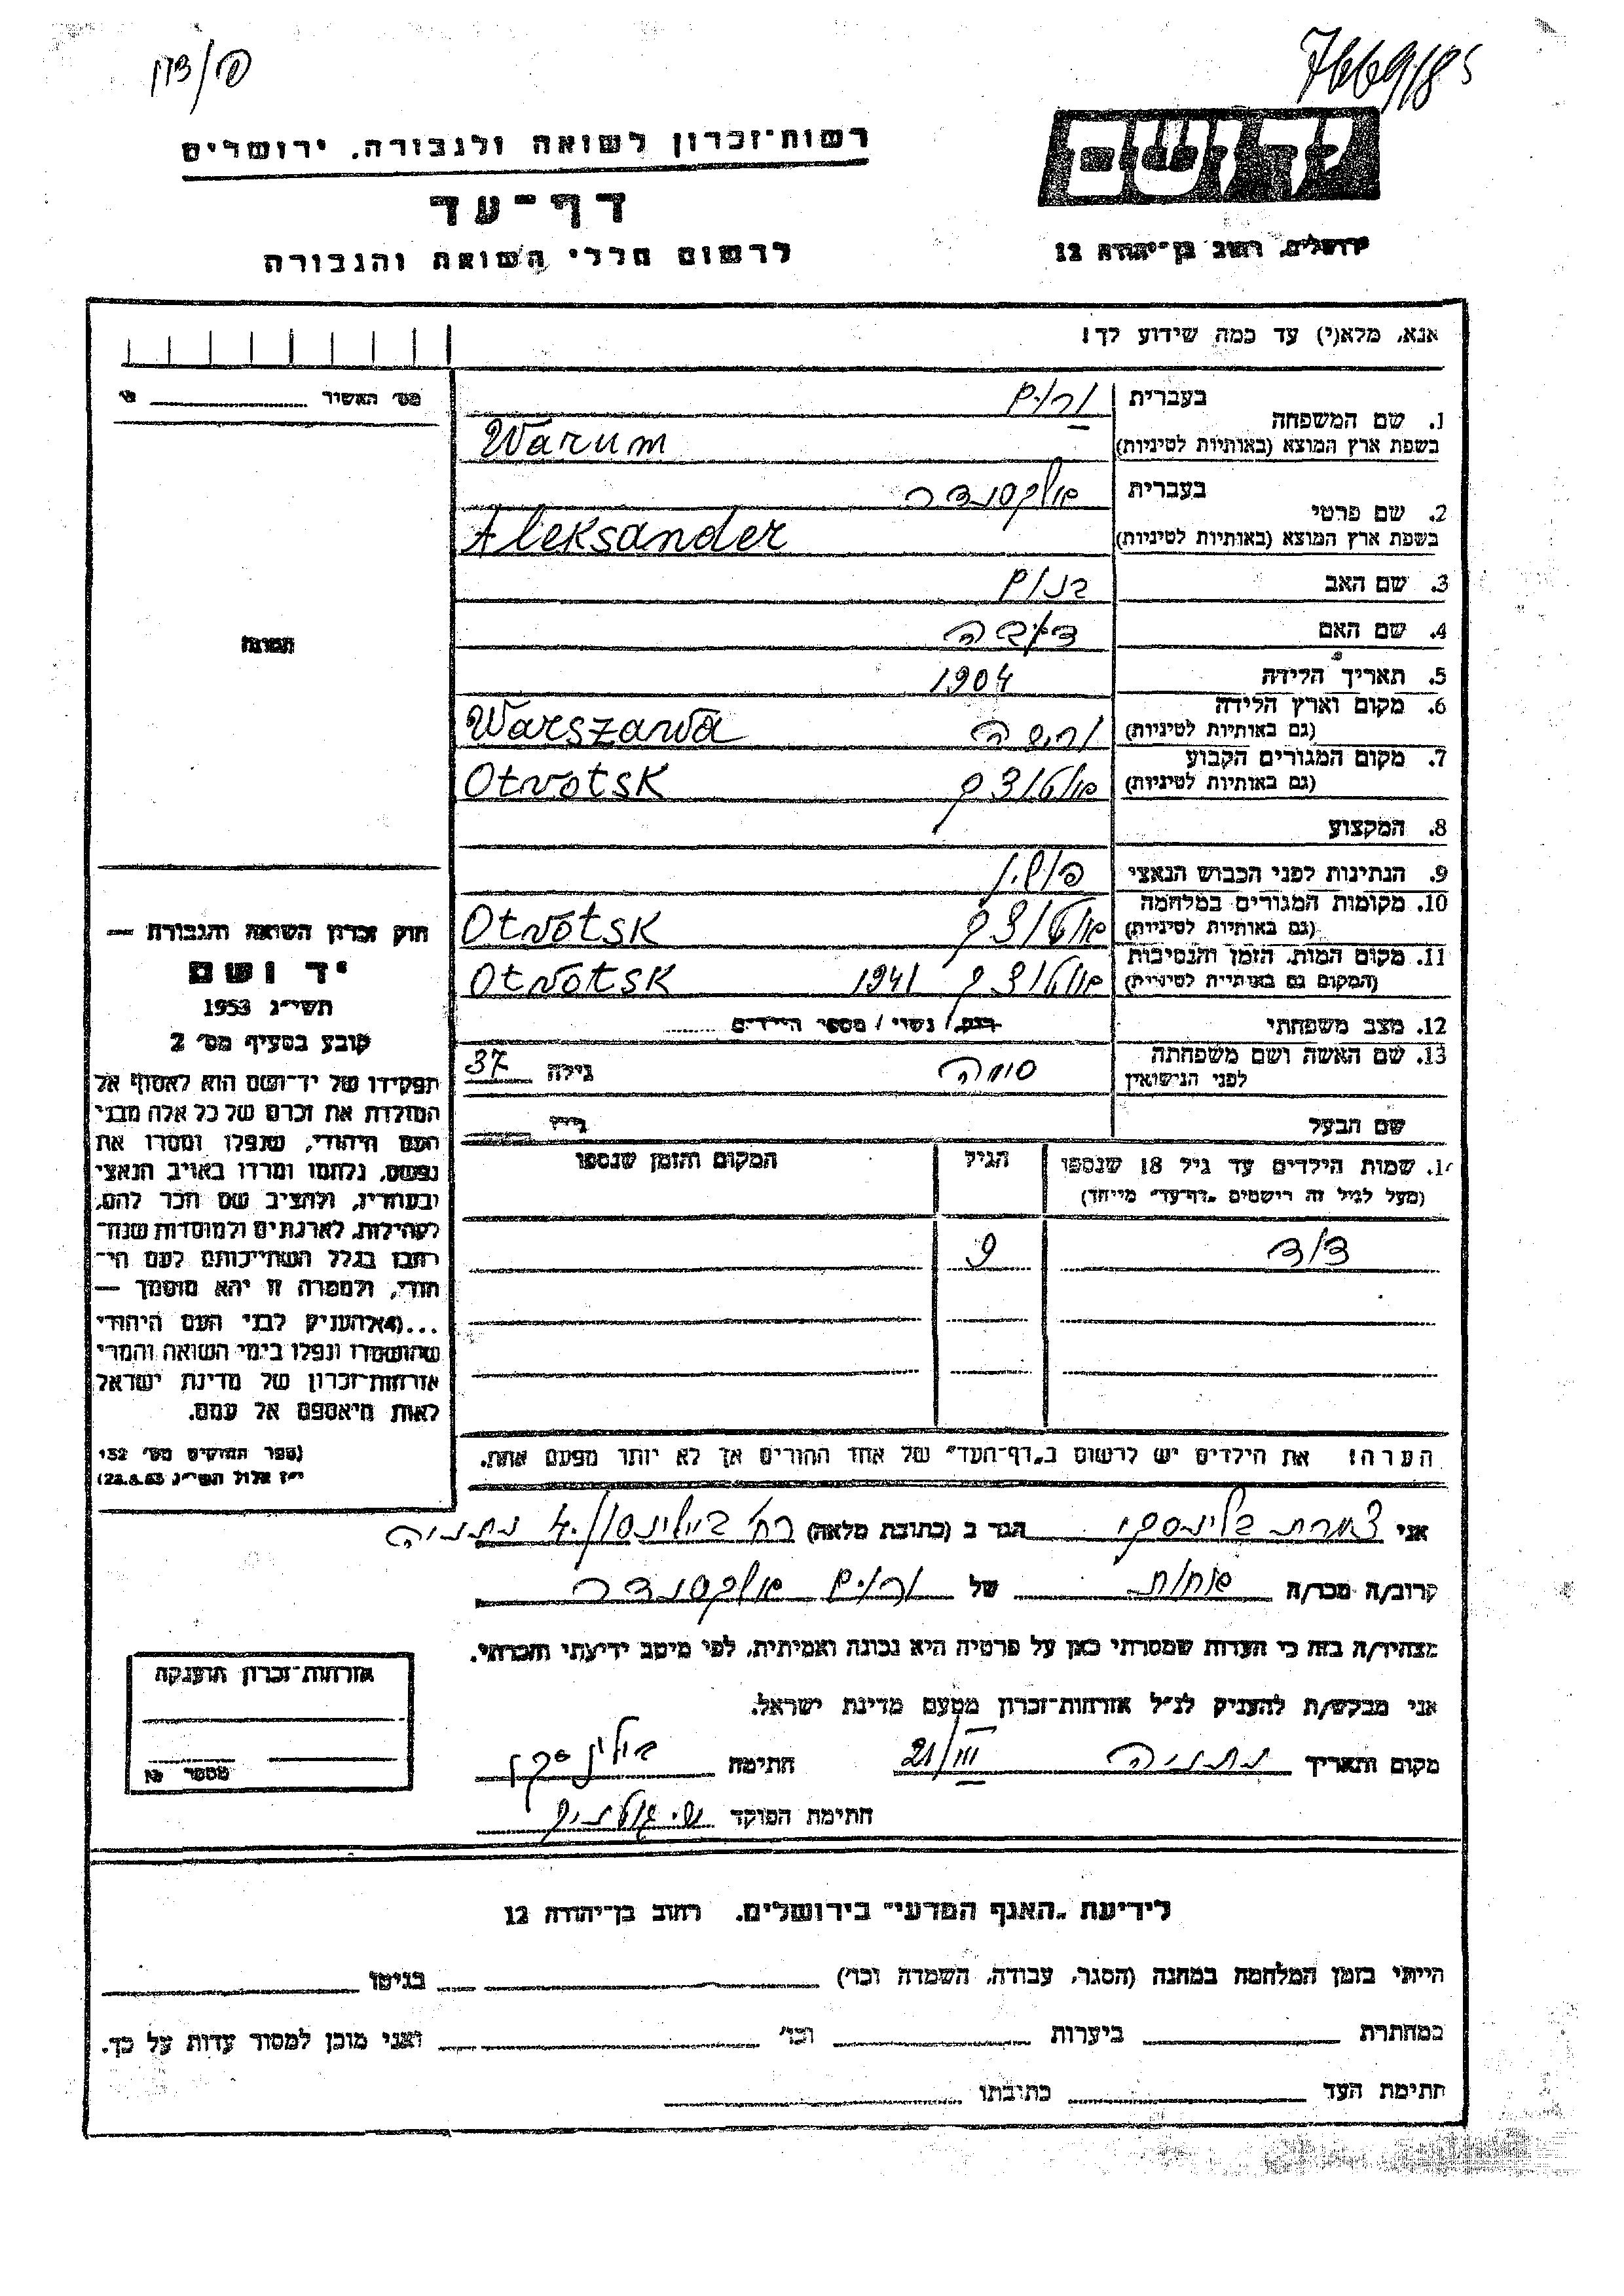 7669/85
רשות־זכרון לשואה ולגבורה, ירושלים
דף־עד
לרשום חללי השואה והגבורה
יד ושם
ירושלים, רחוב בן־יהודה 12
אנא, מלא(י) עד כמה שידוע לך!
מס׳ האשיר
1. שם המשפחה
בעברית ורום
בשפת ארץ המוצא (באותיות לטיניות) Warum
2. שם פרטי
בעברית אלקסנדר
בשפת ארץ המוצא (באותיות לטיניות) Aleksander
3. שם האב בנום
4. שם האם
5. תאריך הלידה 1904
6. מקום וארץ הלידה
(גם באותיות לטיניות) ורשה Warszawa
7. מקום המגורים הקבוע
(גם באותיות לטיניות) אוטוצק Otvotsk
8. המקצוע
9. הנתינות לפני הכבוש הנאצי
10. מקומות המגורים במלחמה
(גם באותיות לטיניות) אוטוצק Otvotsk
11. מקום המות, הזמן והנסיבות
(המקום גם באותיות לטיניות) אוטוצק 1941 Otvotsk
12. מצב משפחתי רווק / נשוי / מספר הילדים
13. שם האשה ושם משפחתה
לפני הנישואין גילה 37
שם הבעל גילו
14. שמות הילדים עד גיל 18 שנספו הגיל המקום והזמן שנספו
(מעל לגיל זה רושמים „דף־עד״ מיוחד)
דוד 9
הערה! את הילדים יש לרשום ב„דף־העד״ של אחד ההורים אך לא יותר מפעם אחת.
תמונה
חוק זכרון השואה והגבורה —
יד ושם
תשי״ג 1953
קובע בסעיף מס׳ 2
תפקידו של יד־ושם הוא לאסוף אל
המולדת את זכרם של כל אלה מבני
העם היהודי, שנפלו ומסרו את
נפשם, נלחמו ומרדו באויב הנאצי
ובעוזריו, ולהציב שם וזכר להם,
לקהילות, לארגונים ולמוסדות שנח־
רבו בגלל השתייכותם לעם הי־
הודי, ולמטרה זו יהא מוסמך —
...(4)להעניק לבני העם היהודי
שהושמדו ונפלו בימי השואה והמרי
אזרחות־זכרון של מדינת ישראל
לאות היאספם אל עמם.
(ספר החוקים מס׳ 132
י״ז אלול תשי״ג 28.8.53)
אני צמרת בילינסקי הגר ב (כתובת מלאה) רח׳ בילינסון 4 נתניה
קרוב/ה מכר/ה אחות של ורום אלקסנדר
מצהיר/ה בזה כי העדות שמסרתי כאן על פרטיה היא נכונה ואמיתית, לפי מיטב ידיעתי והכרתי.
אני מבקש/ת להעניק לנ״ל אזרחות־זכרון מטעם מדינת ישראל.
מקום ותאריך נתניה 21/III חתימה בילינסקי
חתימת הפוקד
אזרחות־זכרון הוענקה
מספר
לידיעת „האגף המדעי״ בירושלים, רחוב בן־יהודה 12
הייתי בזמן המלחמה במחנה (הסגר, עבודה, השמדה וכו׳) בגיטו
במחתרת ביערות וכו׳ ואני מוכן למסור עדות על כך.
חתימת העד כתובתו